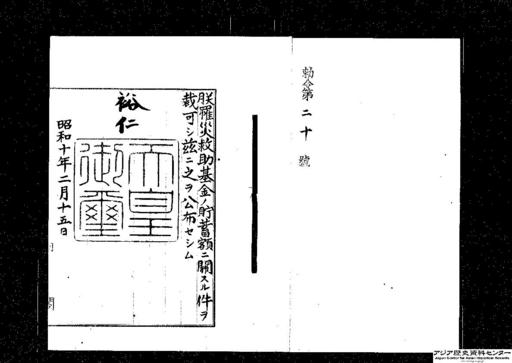 勅令第二十號
朕罹災救助基金ノ貯蓄額ニ關スル件ヲ
裁可シ茲ニ之ヲ公布セシム
裕仁
天皇御璽
昭和十年二月十五日
アジア歴史資料センター
Japan Center for Asian Historical Records